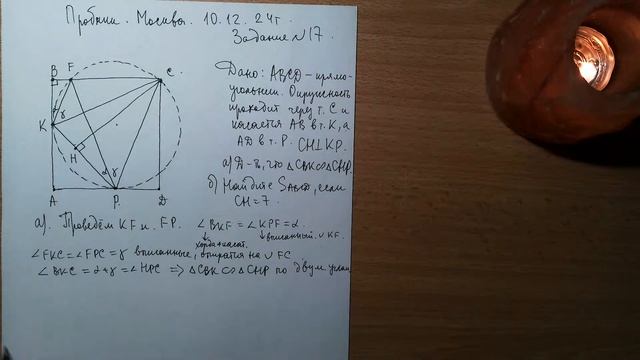 Пробник. Москва. 10.12.24г.
Задание №17.
B F C
K
H
A P D
α γ
α γ
Дано: ABCD – прямо-
угольник. Окружность
проходит через т. C и
касается AB в т. K, а
AD в т. P. CH⊥KP.
а) Д-ть, что △CBK∾△CHP.
б) Найдите SABCD, если
CH=7.
а). Проведём KF и FP. ∠BKF = ∠KPF = α.
хорда+касат. вписанный. ∪KF.
∠FKC = ∠FPC = γ вписанные, опираются на ∪FC
∠BKC = α+γ = ∠HPC ⇒ △CBK ∾ △CHP по двум углам